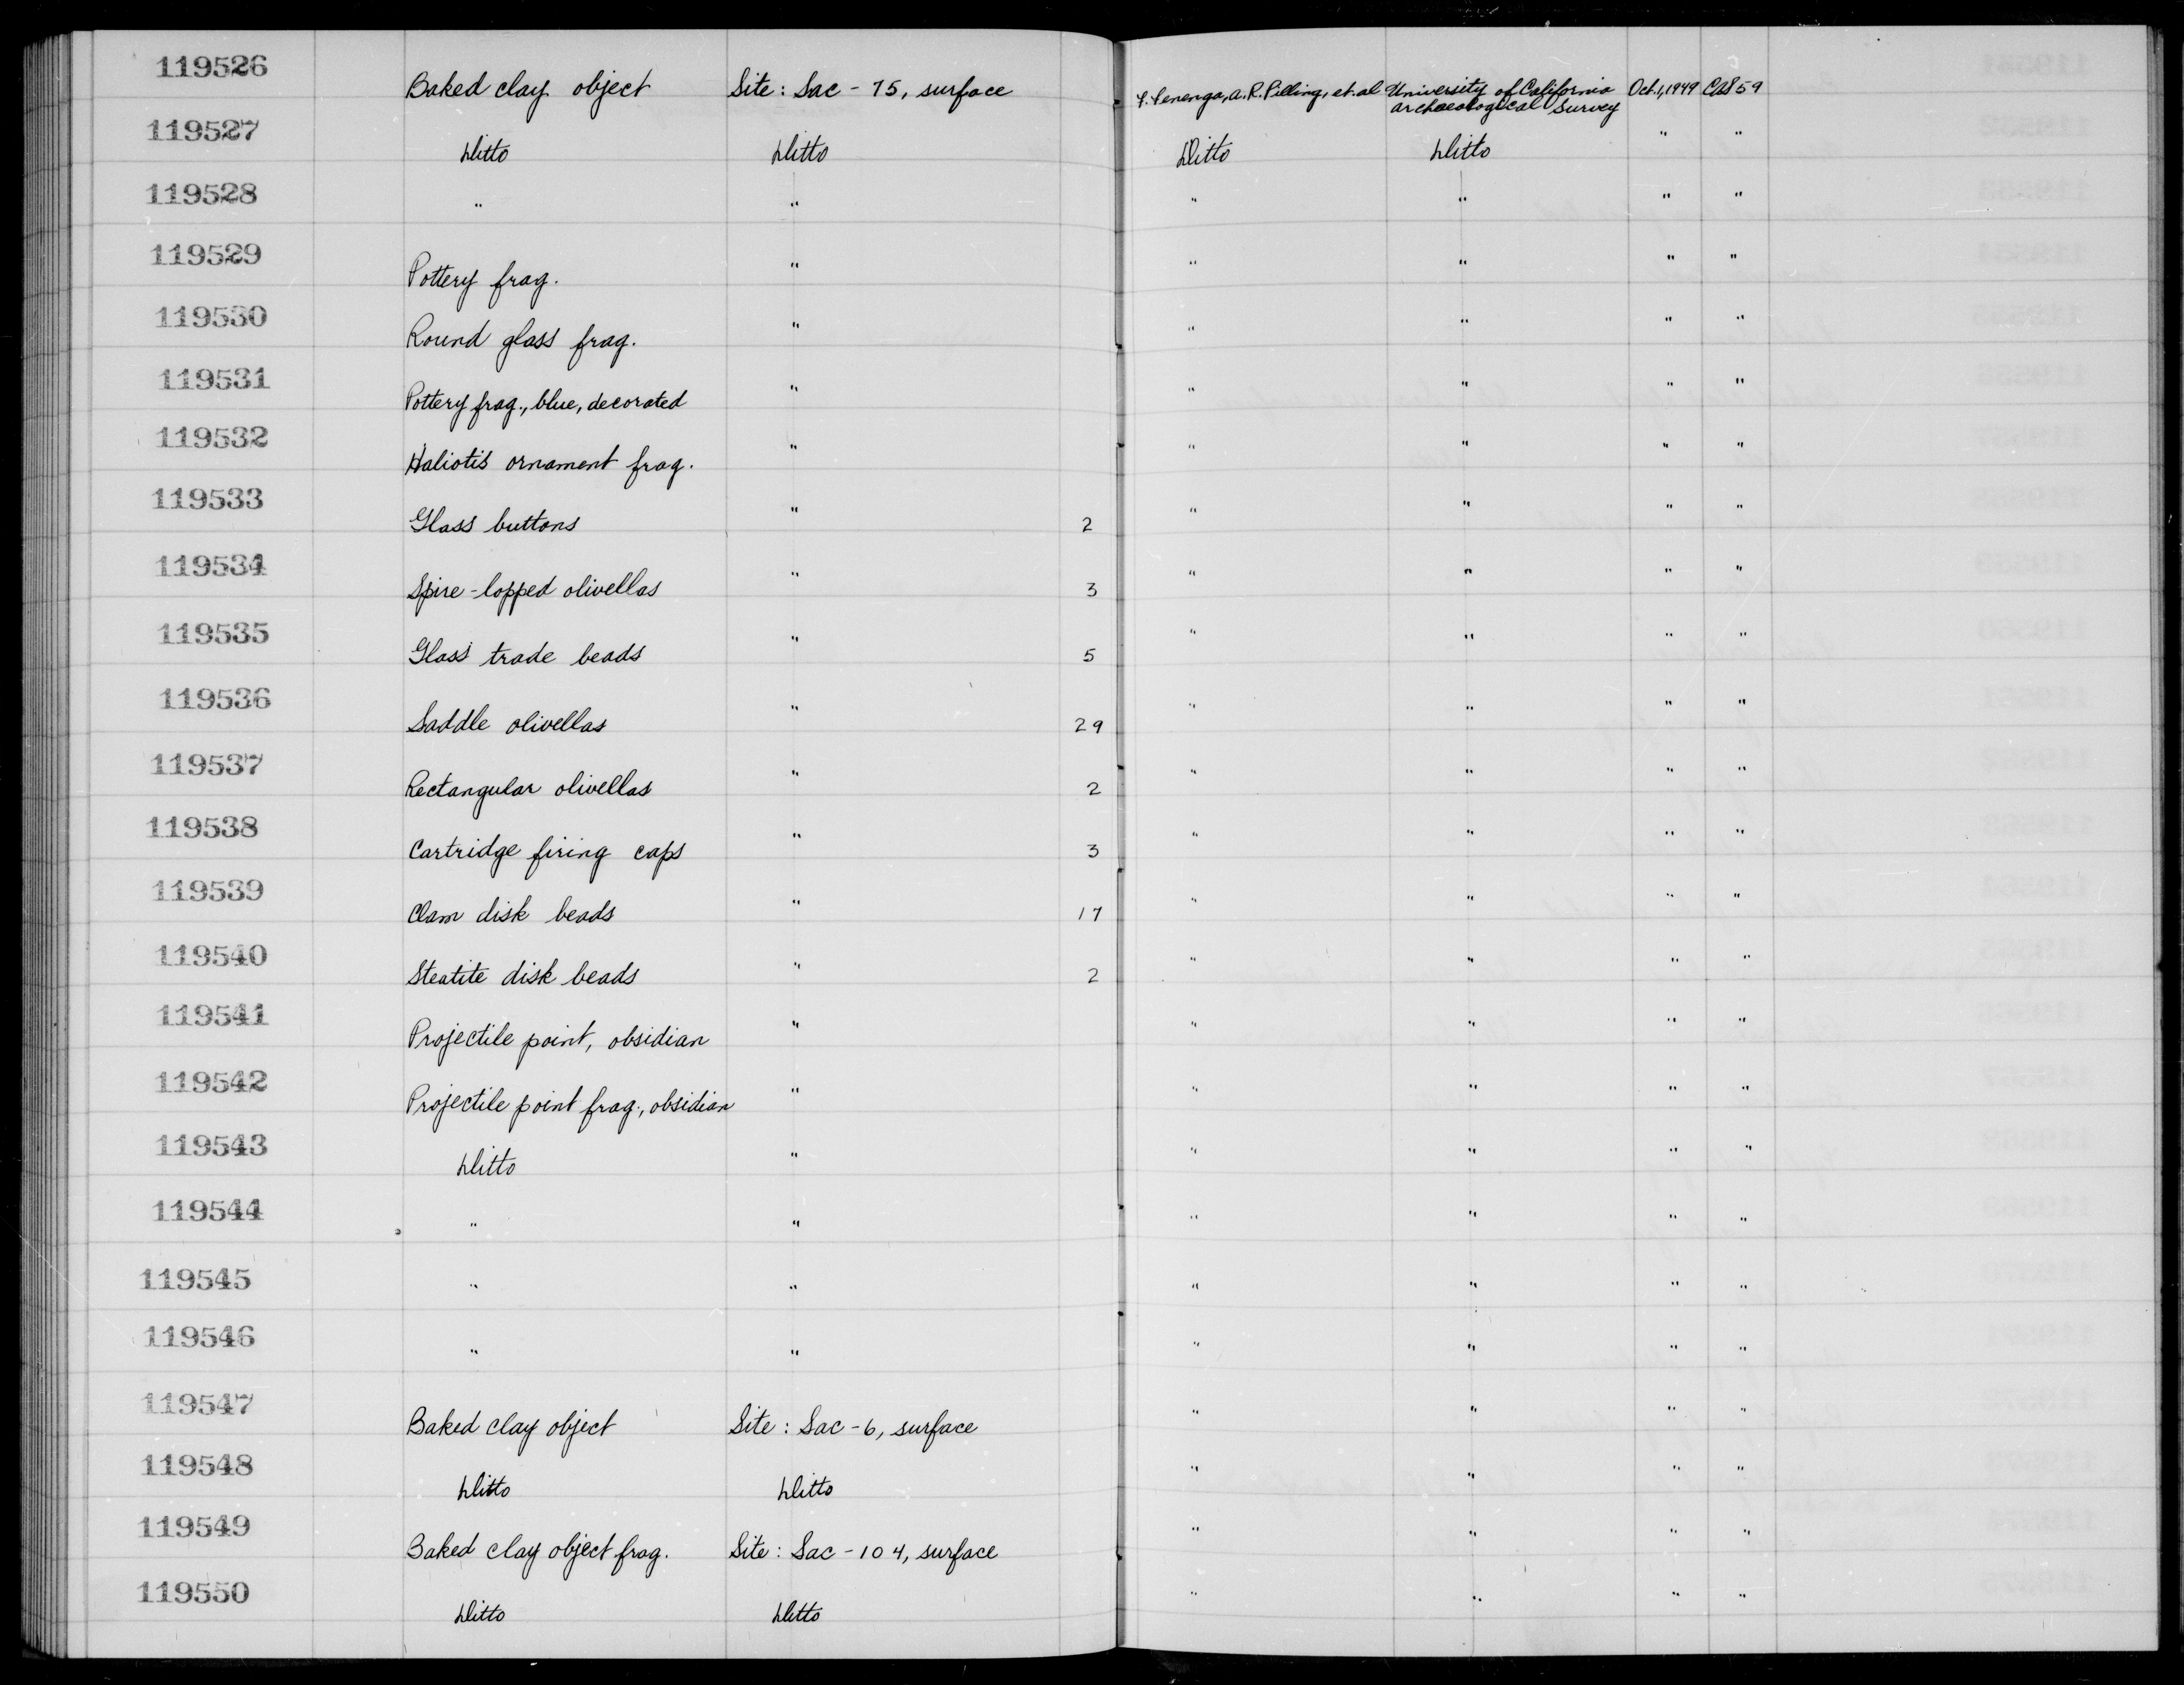 119526 Baked clay object Site: Sac - 75, surface F. Fenenga, A.R. Pilling, et. al University of California Archaeological Survey Oct. 1, 1949
119527 Ditto Ditto Ditto Ditto " "
119528 " " " " " "
119529 Pottery frag. " " " " "
119530 Round glass frag. " " " " "
119531 Pottery frag., blue, decorated " " " " "
119532 Haliotis ornament frag. " " " " "
119533 Glass buttons " 2 " " " "
119534 Spire-lopped olivellas " 3 " " " "
119535 Glass trade beads " 5 " " " "
119536 Saddle olivellas " 29 " " " "
119537 Rectangular olivellas " 2 " " " "
119538 Cartridge firing caps " 3 " " " "
119539 Clam disk beads " 17 " " " "
119540 Steatite disk beads " 2 " " " "
119541 Projectile point, obsidian " " " " "
119542 Projectile point frag., obsidian " " " " "
119543 Ditto " " " " "
119544 " " " " " "
119545 " " " " " "
119546 " " " " " "
119547 Baked clay object Site: Sac - 6, surface " " " "
119548 Ditto Ditto " " " "
119549 Baked clay object frag. Site: Sac - 104, surface " " " "
119550 Ditto Ditto " " " "